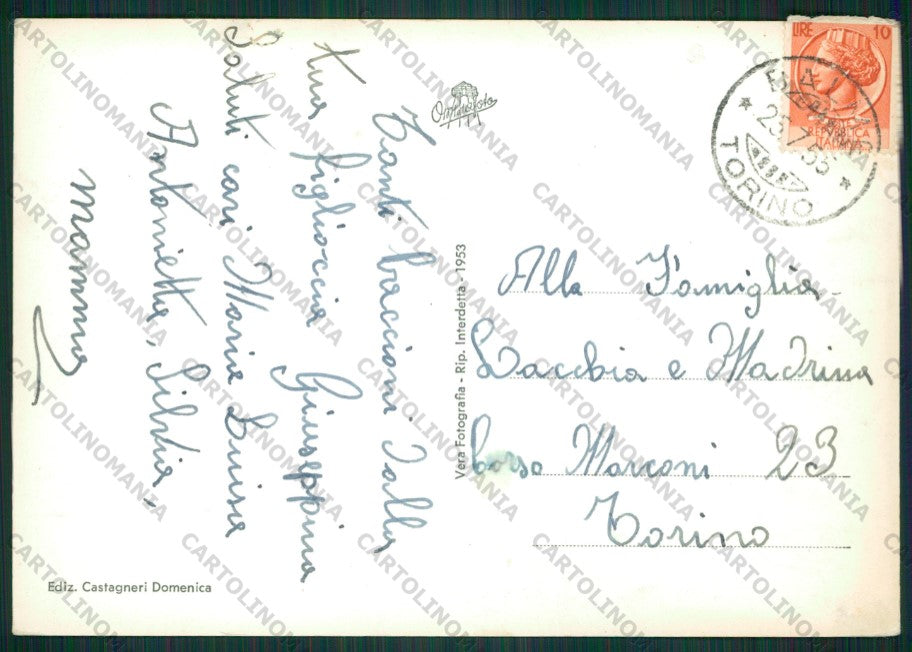 Tanti baccioni dalla
tua figlioccia Giuseppina
Saluti cari Maria Luisa
Antonietta, Silvia,
mamma
Ediz. Castagneri Domenica
Vera Fotografia - Rip. Interdetta - 1953
LIRE 10
REPUBBLICA
ITALIANA
25.7.55
TORINO
Alla Famiglia
Lacchia e Madrina
Corso Marconi 23
Torino
CARTOLINOMANIA